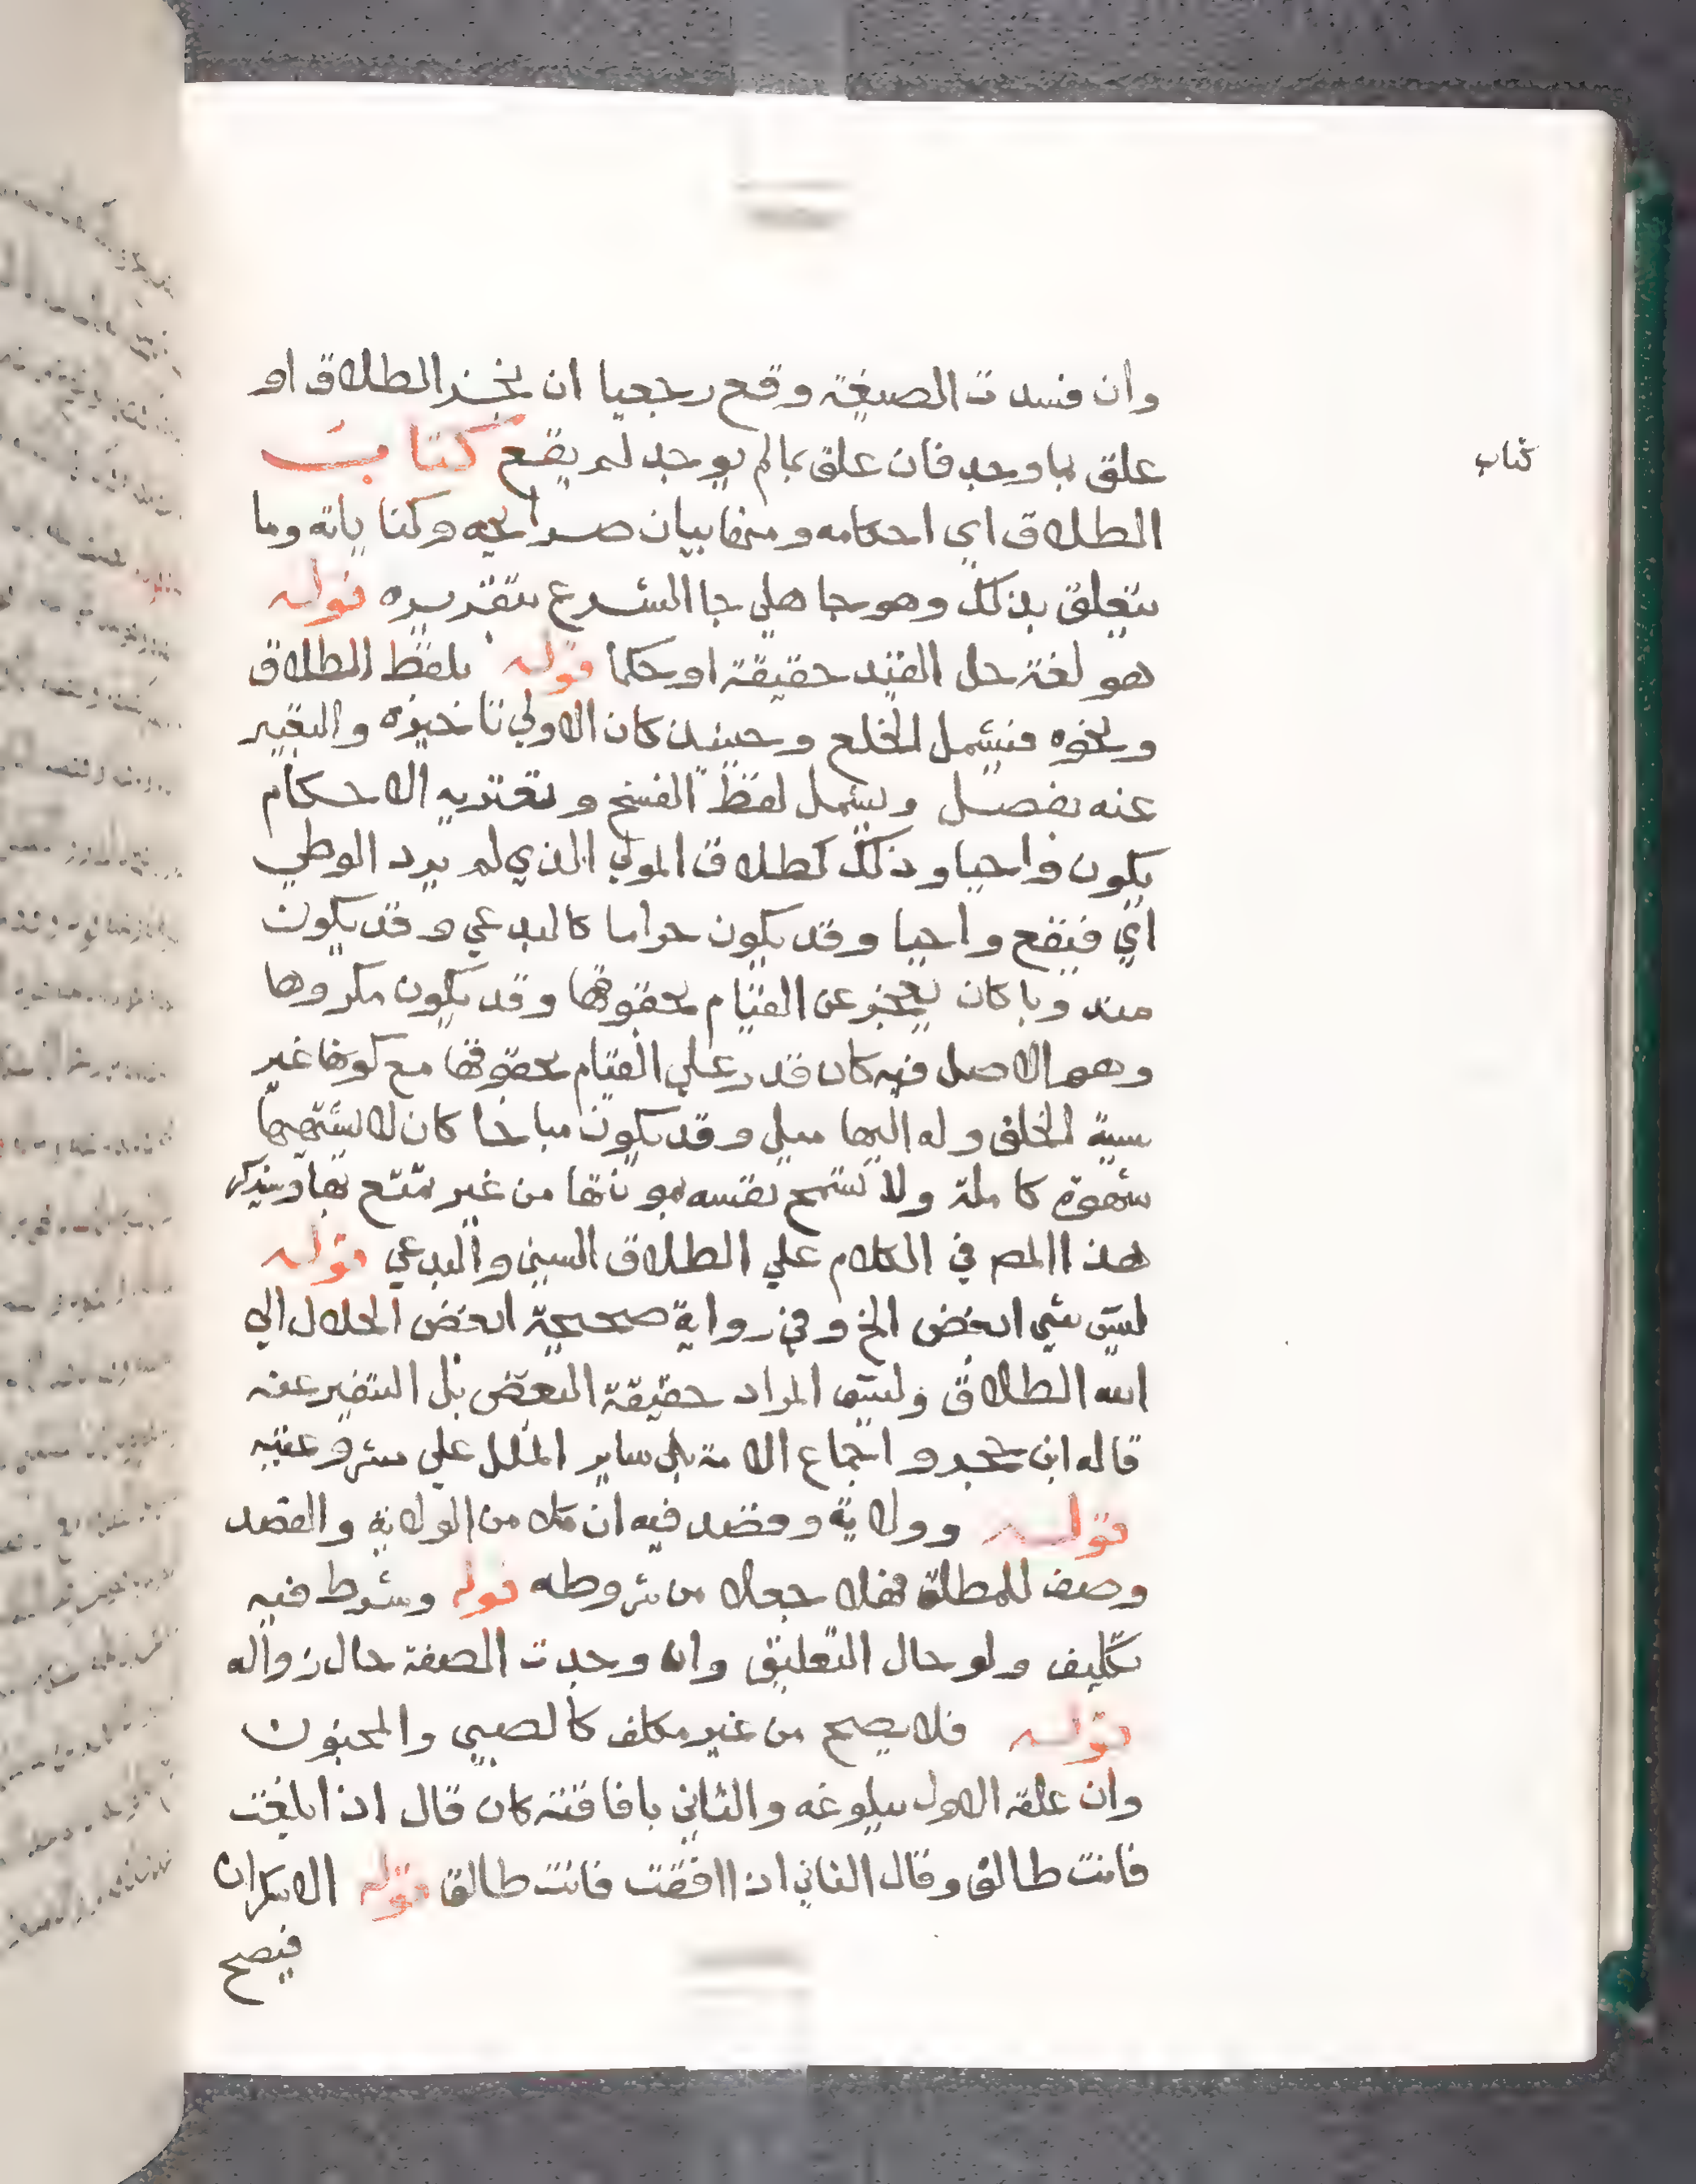 وان فسدت الصيغة وقع رجعيا ان نجز الطلاق او
علق بما وجد فان علق بما لم يوجد لم يقع كتاب
كتاب
الطلاق اي احكامه ومنها بيان صرايحه وكناياته وما
يتعلق بذلك وهو جاهلي جا الشرع بتقريره قوله
هو لغة حل القيد حقيقة او حكما قوله بلفظ الطلاق
ونحوه فيشمل الخلع وحينيذ كان الاولي تاخيره والتعبير
عنه بفصل ويشمل لفظ الفسخ وتعتريه الاحكام
يكون واجبا وذلك كطلاق المولي الذي لم يرد الوطي
اي فيقع واجبا وقد يكون حراما كالبدعي وقد يكون
مندوبا كان يعجز عن القيام بحقوقها وقد يكون مكروها
وهو الاصل فيه كان قدر علي القيام بحقوقها مع كونها غير
سيية الخلق وله اليها ميل وقد يكون مباحا كان لا يشتهيها
شهوة كاملة ولا تسمح نفسه بمونتها من غير تمتع بها وسيذكر
هذا المص في الكلام علي الطلاق السني والبدعي قوله
ليس شي ابغض الخ وفي رواية صحيحة ابغض الحلال الي
الله الطلاق وليس المراد حقيقة البغض بل التنفير عنه
قاله ابن حجر واجماع الامة بل ساير الملل علي مشروعيته
قوله وولاية وقصد فيه ان كلا من الولاية والقصد
وصف للمطلق فهلا جعلا من شروطه قوله وشرط فيه
تكليف ولو حال التعليق وان وجدت الصفة حال زواله
قوله فلا يصح من غير مكلف كالصبي والمجنون
وان علقه الاول ببلوغه والثاني بافاقته كان قال اذا بلغت
فانت طالق وقال الثاني اذا افقت فانت طالق قوله الا سكران
فيصح